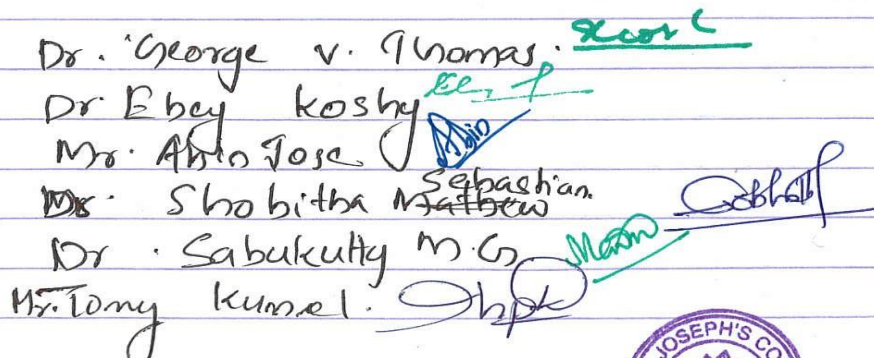 Dr. George V. Thomas.
Dr. Ebey Koshy
Mr. Abin Jose Abin
Shobitha Mathew Sebastian.
Dr. Sabukutty M.G
Mr. Tomy
JOSEPH'S CO